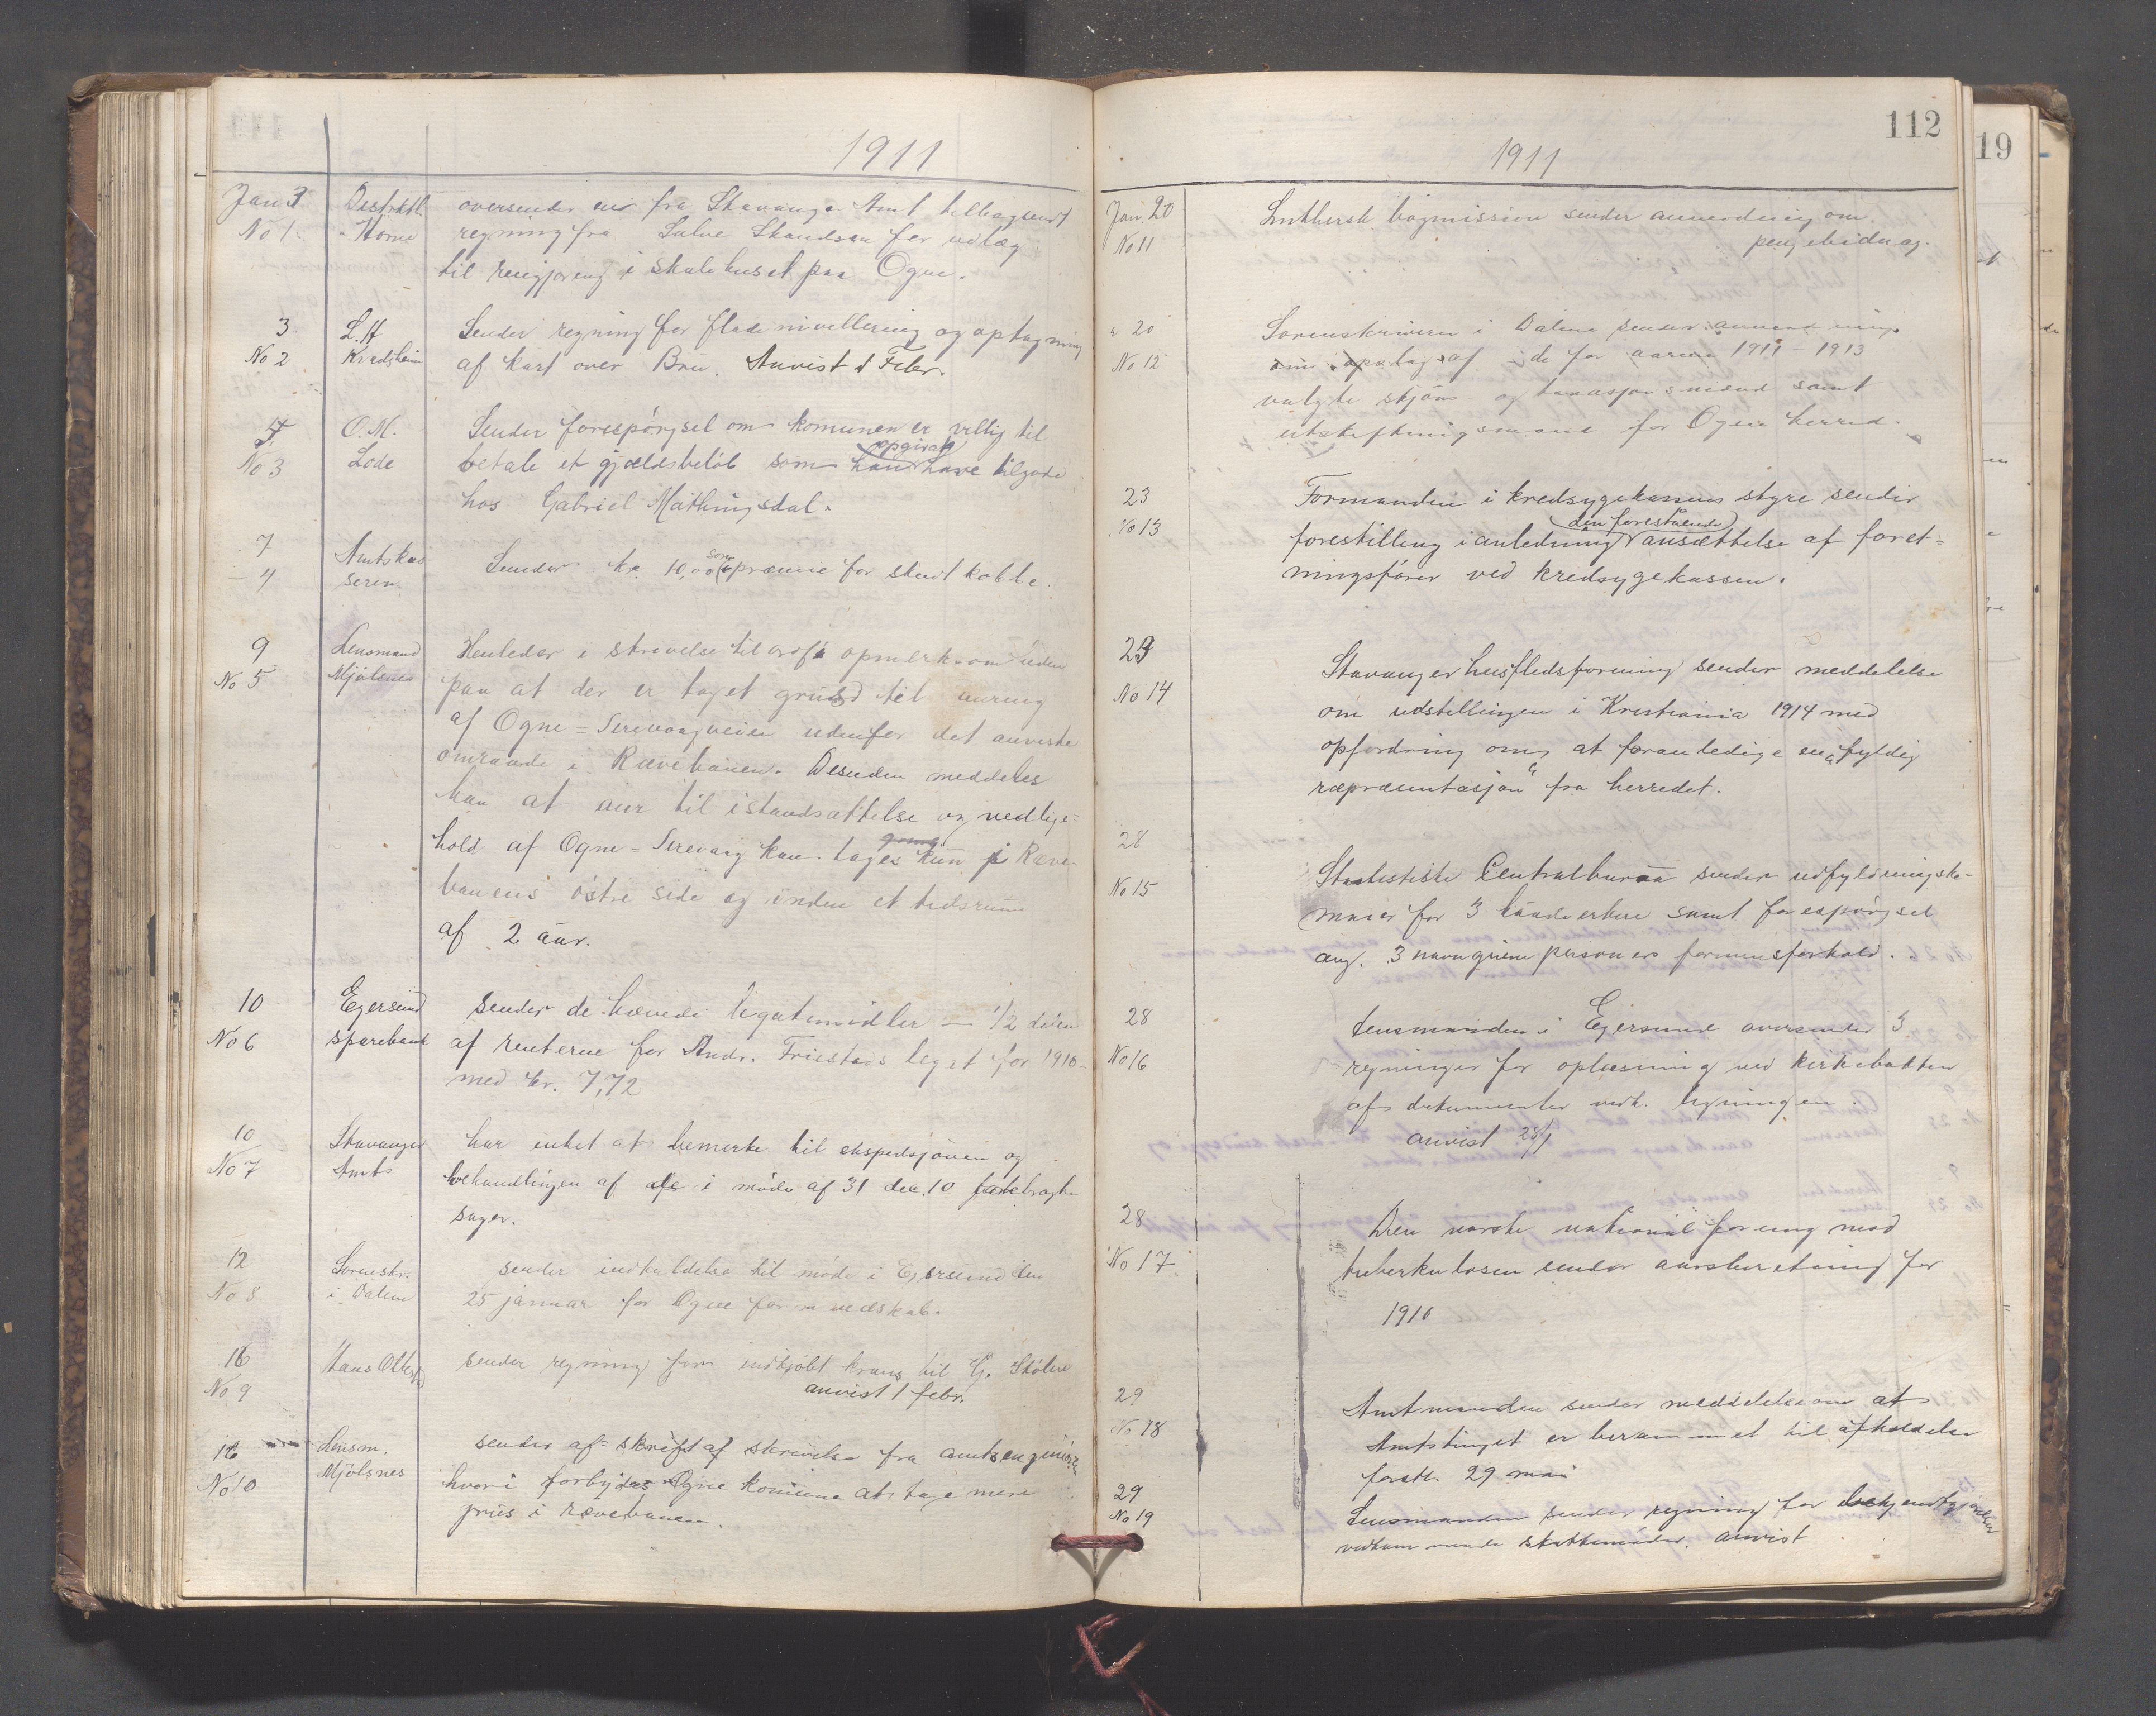 1911
Jan 3 Distriktl. oversender en fra Stavanger Amt tilbagesendt
No 1 Horne regning fra Salve Skandsen for udlæg
til rengjøring i skolehuset paa Ogne.
3 L. H. Sender regning for flade nivellering og optagning
No 2 Kvadsheim af kart over Bru. Anvist 1 Febr.
7 O. M. Sender forespørgsel om komunen er villig til
No 3 Lode betale et gjældsbeløb som opgives have tilgode
hos Gabriel Mathingsdal.
7 Amtskas Sender kr. 10,00 som præmie for skudt kobbe.
- 4 seren
9 Lensmand Henleder i skrivelse til opmerksomheden
No 5 Mjølsnes paa at der er taget grus til auring
af Ogne = Sirevaagveien udenfor det anviste
omraade i Rævehauen. Desuden meddeles
han at aur til istandsættelse og vedlige=
hold af Ogne = Sirevaag kan tages kun i Ræve-
hauens østre side og inden et tidsrum
af 2 aar.
10 Egersund sender de hævede legatmidler — 1/2 delen
No 6 sparebank af renterne for Andr. Friestads legat for 1910
med kr. 7,72
10 Stavanger har intet at bemerke til ekspedsjonen og
No 7 Amt behandlingen af de i møde af 31 dec. 10
sager.
12 Sorenskr. sender indkaldelse til møde i Egersund den
No 8 i Dalene 25 januar for Ogne formandskab.
16 Hans sender regning for indkjøbt krans til G. Stølen
No 9 anvist 1 febr.
16 Lensm. sender af= skrift af skrivelse fra amtsingeniøren
No 10 Mjølsnes hvori forbydes Ogne komune at tage mere
grus i rævehauen.
112
19
1911
Jan. 20 Luthersk bogmission sender anmodning om
No 11 pengebidrag.
" 20 Sorenskriveren i Dalene sender anmodning
No 12 om opslag af de for aarene 1911 - 1913
valgte skjøns og taxasjonsmænd samt
utskiftningsmænd for Ogne herred.
23 Formanden i kredsygekassens styre sender
No 13 forestilling i anledning den forestaaende ansættelse af foret=
ningsfører ved kredsygekassen.
23 Stavanger husflidsforening sender meddelelse
No 14 om udstillingen i Kristiania 1914 med
opfordring om at foranledige en fyldig
ræpræsentasjon fra herredet.
28
No 15 Statistiske Centralburaa sender udfyldningske-
maer for 3 samt forespørgsel
ang. 3 navngivne personers formuesforhold.
28 Lensmanden i Egersund oversender 3
No 16 regninger for oplæsning ved kirkebakken
af dokumenter vedk. ligningen.
anvist 28/1
28 Den norske national forening mod
No 17 tuberkulosen sender aarsberetning for
1910
29 Amtmanden sender meddelelse om at
No 18 Amtstinget er berammet til afholdelse
førstk. 29 mai
29 Lensmanden sender regning for bekjendtgjørelser
No 19 vedkommende skattemøder. anvist